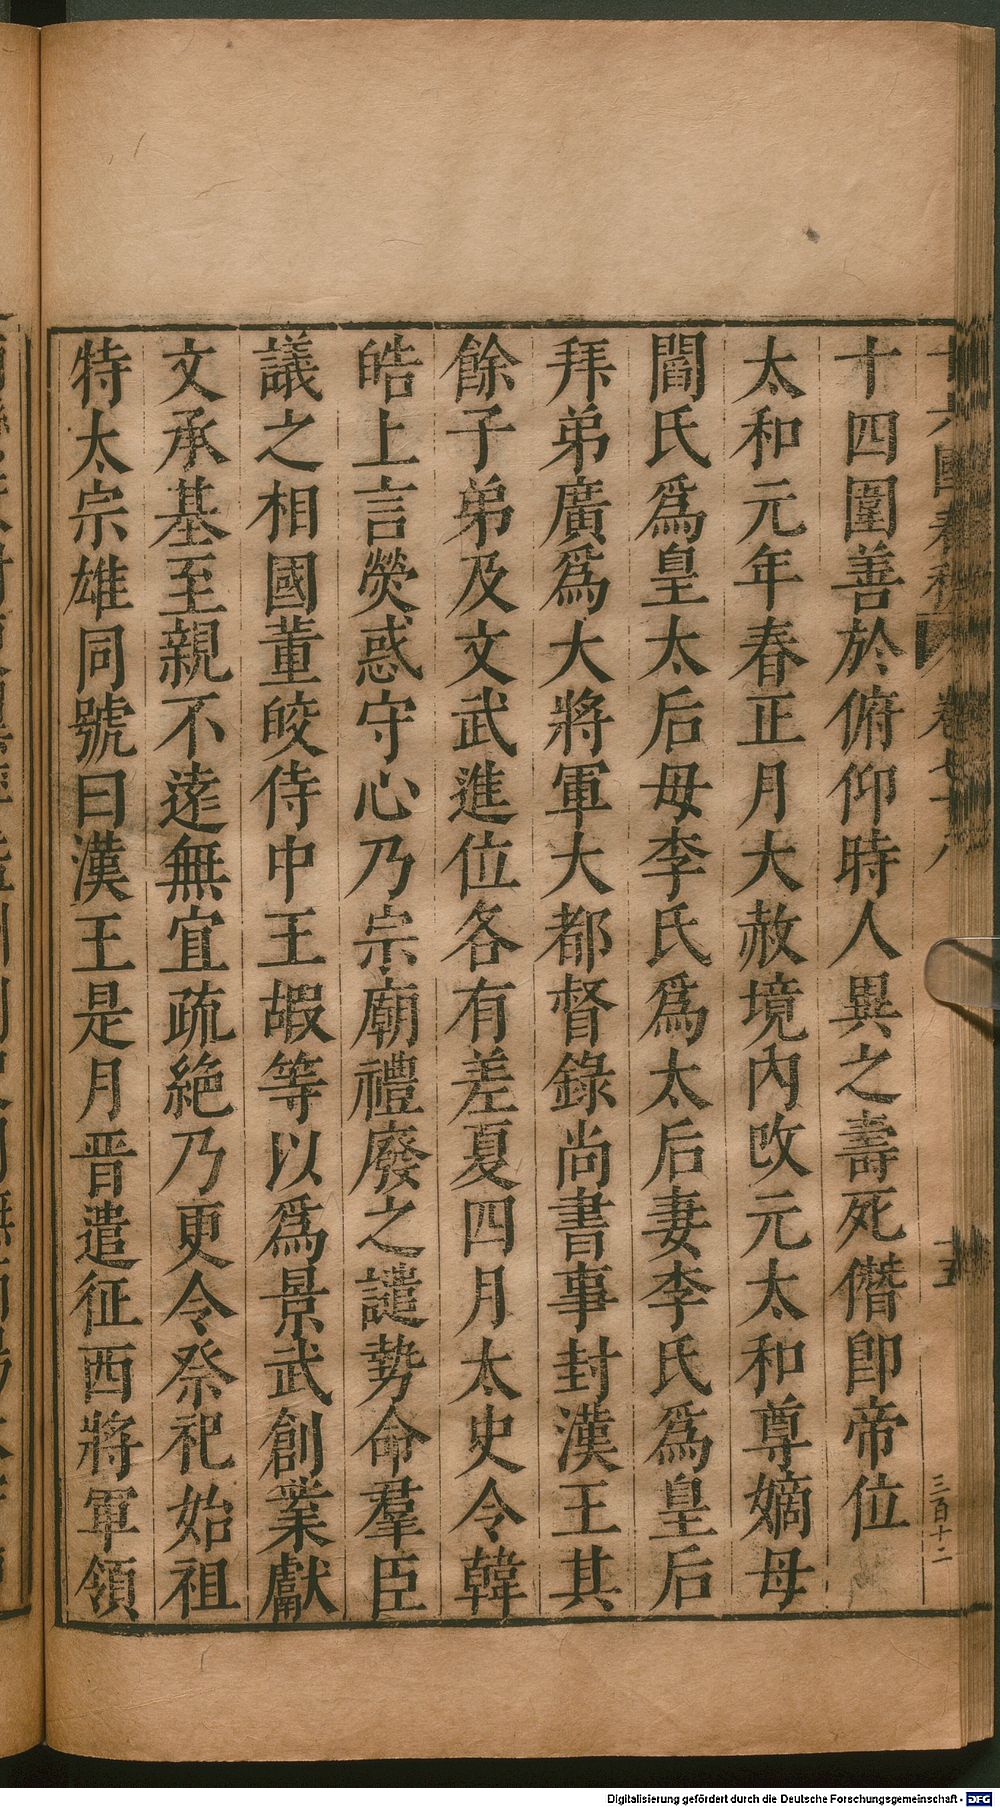 十六國春秋 卷七十八 十五 三百十二
十四圍善於俯仰時人異之壽死僭卽帝位
太和元年春正月大赦境內改元太和尊嫡母
閻氏爲皇太后母李氏爲太后妻李氏爲皇后
拜弟廣爲大將軍大都督錄尚書事封漢王其
餘子弟及文武進位各有差夏四月太史令韓
皓上言熒惑守心乃宗廟禮廢之譴勢命羣臣
議之相國董皎侍中王嘏等以爲景武創業獻
文承基至親不遠無宜疏絕乃更令祭祀始祖
特太宗雄同號曰漢王是月晋遣征西將軍領
Digitalisierung gefördert durch die Deutsche Forschungsgemeinschaft - DFG